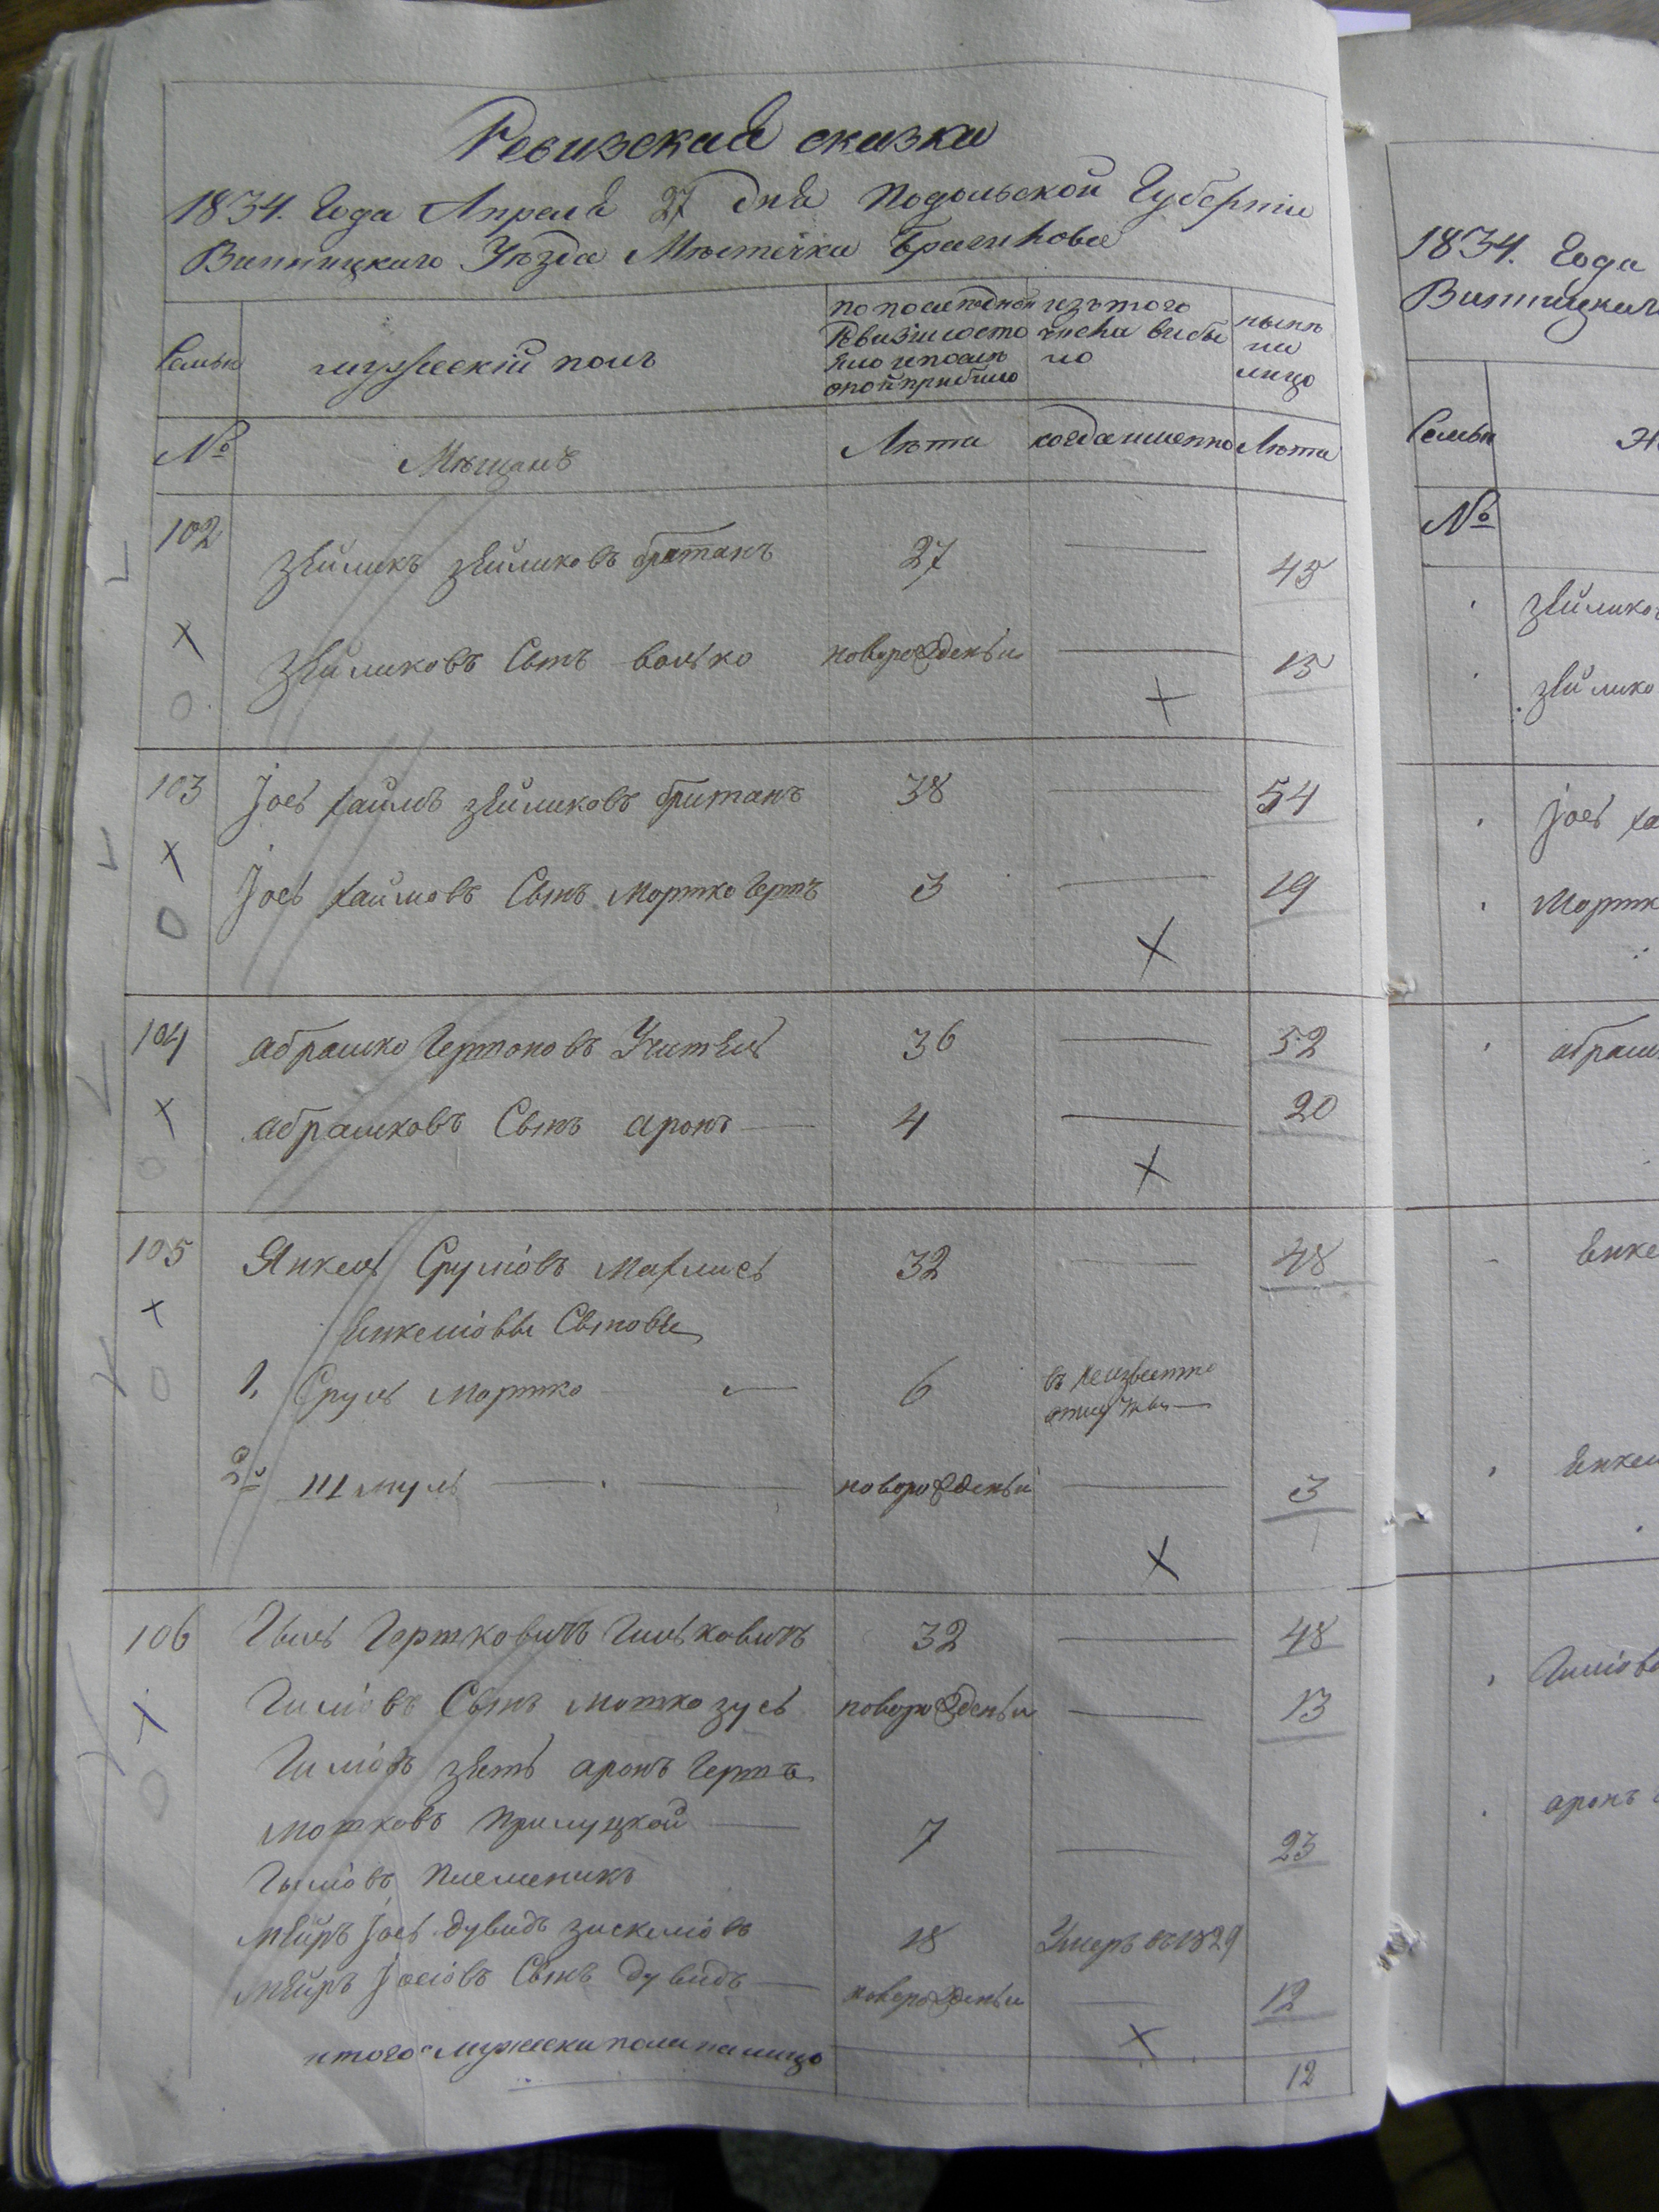 Ревизская сказка
1834. Года Апреля 27 дня Подольской Губернiи
Винницкаго Уѣзда Мѣстечка Браилова
Семьи
мужескiй полъ
по последней Ревизiи состояло и после оной прибыло
изъ того числа выбыло
нынѣ на лицо
№
Мѣщанъ
Лѣта
когда именно
Лѣта
102
Зейликъ Зейликовъ братанъ 27 — 43
Зейликовъ Сынъ Волько новорожденый — 15
103 Iось Хаимъ Зейликовъ братанъ 38 — 54
Iось Хаимовъ Сынъ Мортко Гершъ 3 — 19
104 Абрашко Гершоновъ Учитель 36 — 52
Абрашковъ Сынъ Аронъ — 4 — 20
105 Янкель Срулiовъ Махлись 32 — 48
Янкелiовы Сыновья
1, Сруль Мортко — 6 въ неизвестной отлучки —
2й Шмуль — — новорожденый — 3
106 Гиль Гершковичъ Гильковичъ 32 — 48
Гилiовъ Сынъ Мошко Зусь новорожденый — 13
Гилiовъ зять Аронъ Гершъ
Мошковъ Прилуцкой — 7 — 23
Гилiовъ Племеникъ
Мейръ Iось Дувидъ Зискелiовъ 18 Умеръ въ 1829
Мейръ Iосiовъ Сынъ Дувидъ — новорожденый — 12
итого мужеска пола на лицо 12
1834. Года
Семьи
№
Зейликов
Зейлико
Iось Ха
Мортк
Абраш
Янке
Янкел
Гилiов
Аронъ